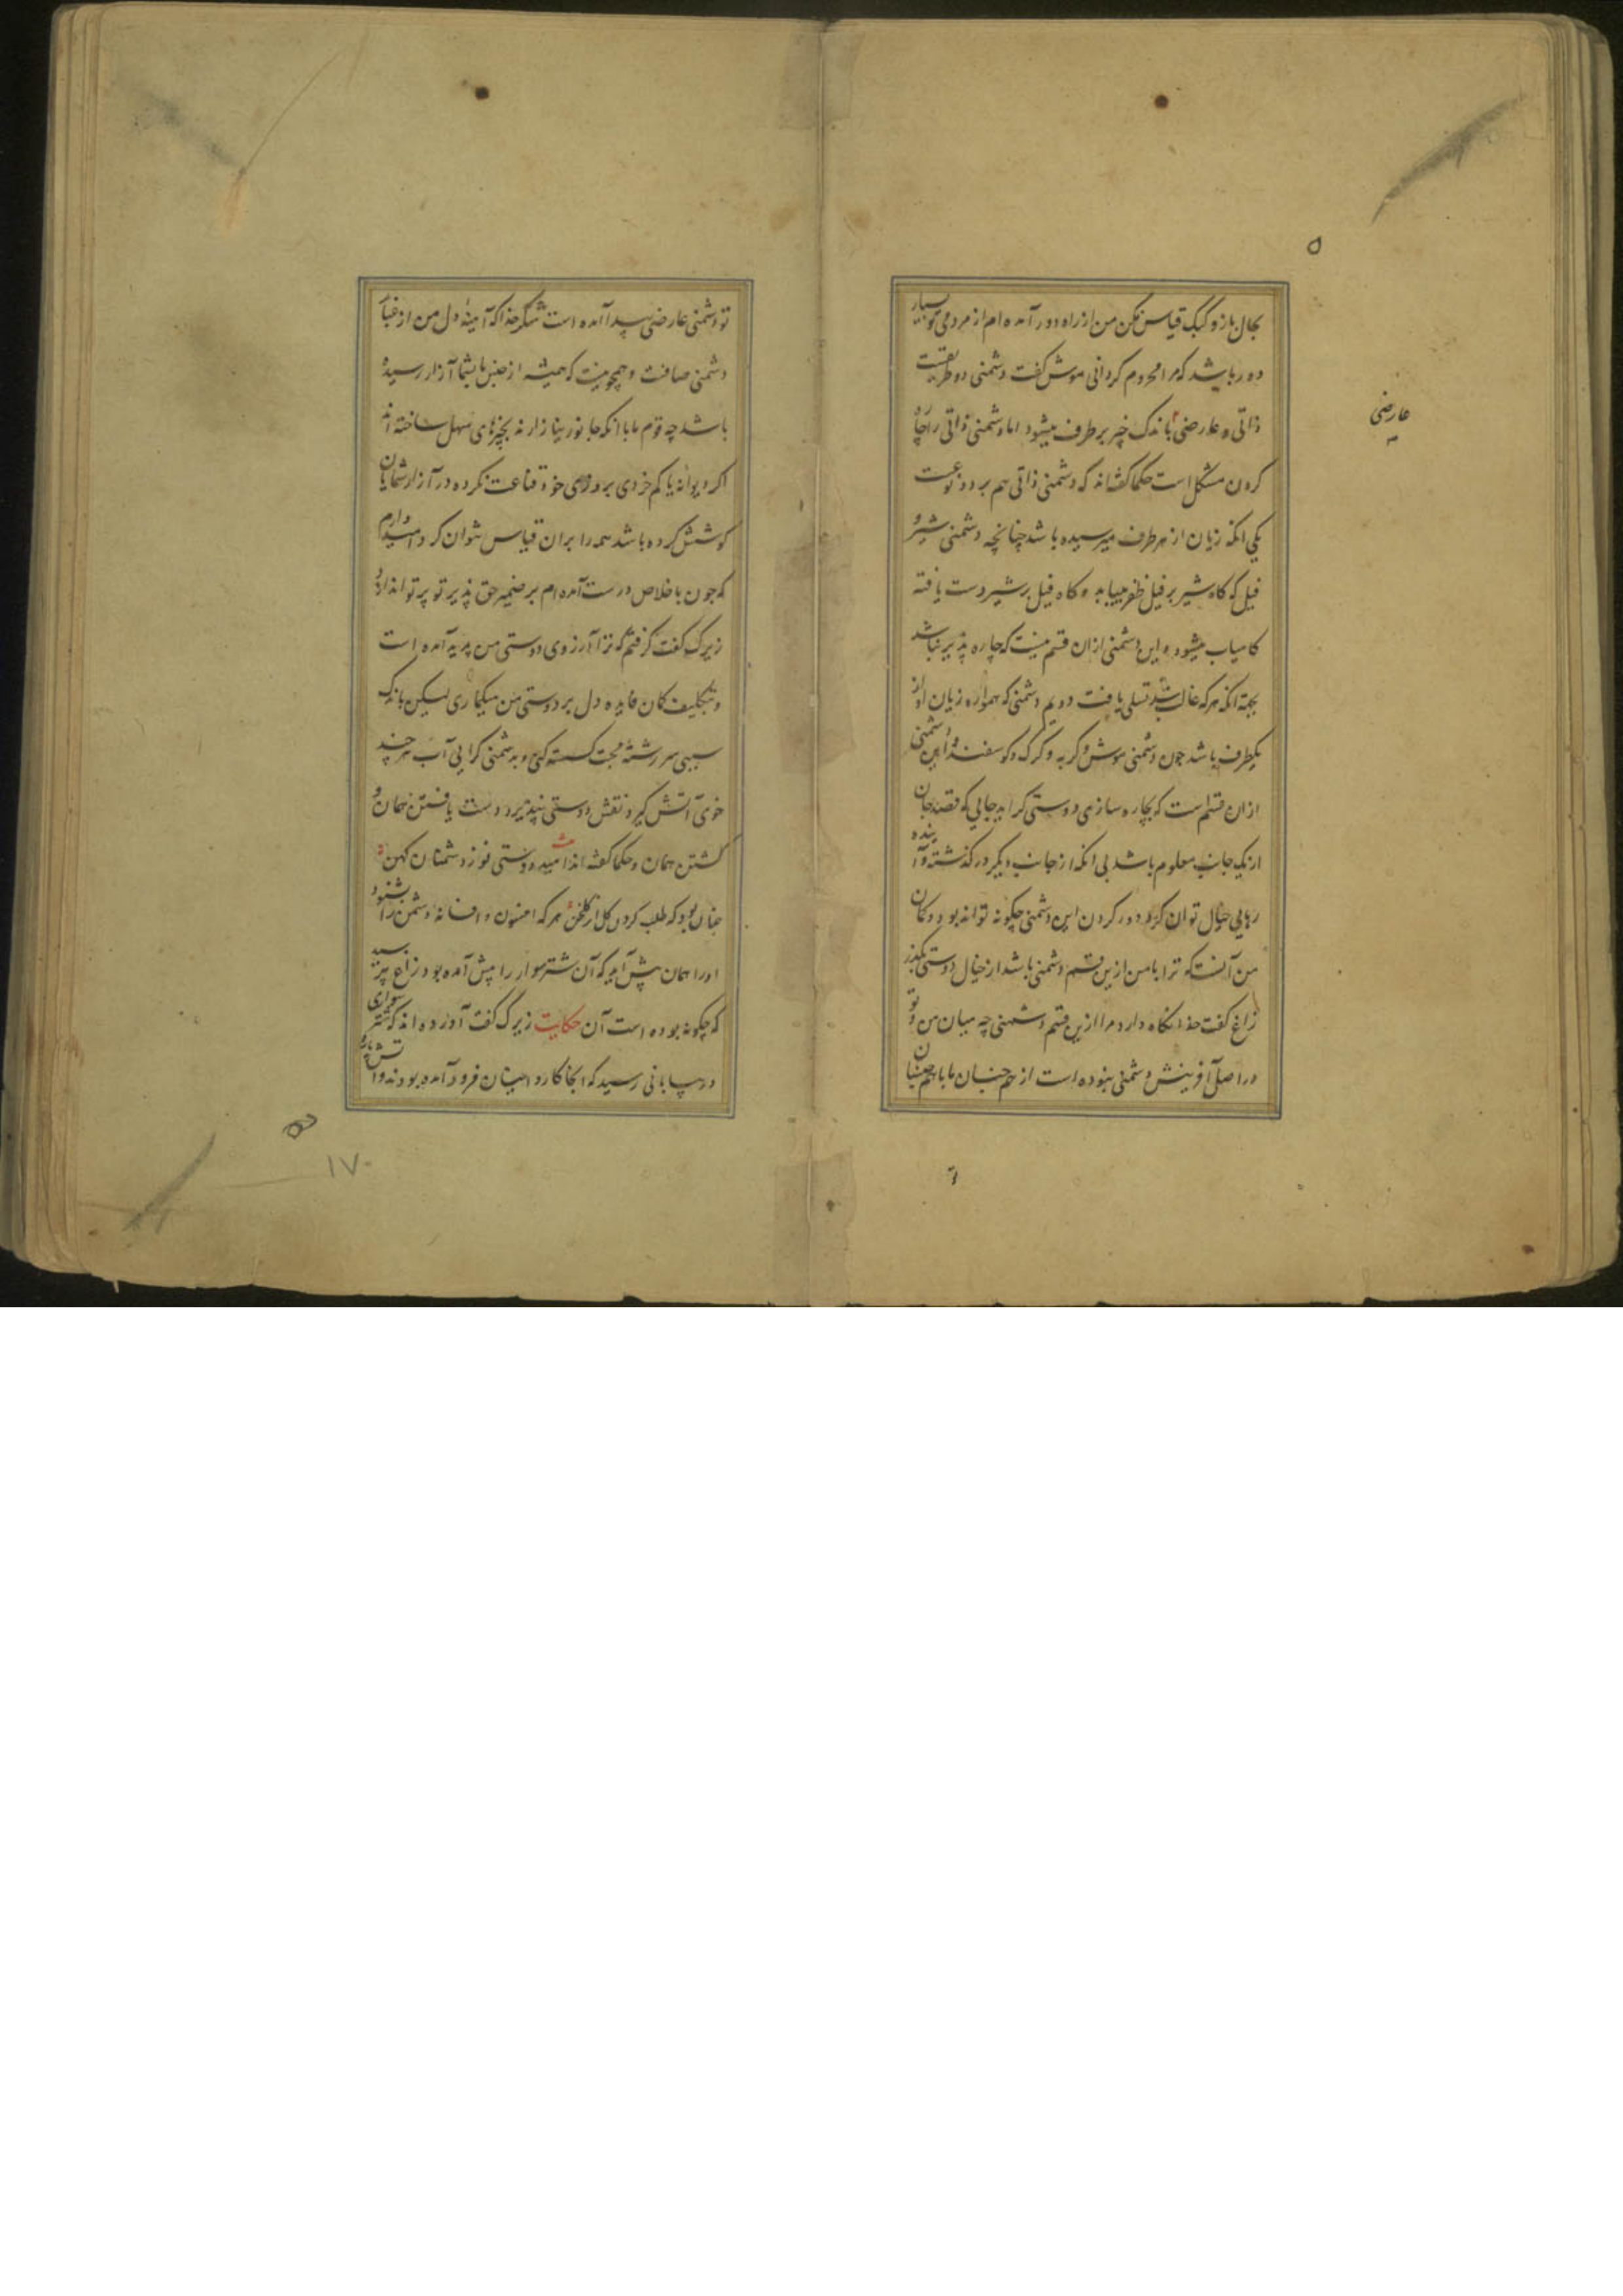 بحال باز و کبک قیاس مکن من از راه دور آمده ام از مردمی تو بسیار
دور باشد که مرا محروم کردانی موش کفت دشمنی دو طریقست
ذاتی و عارضی باندک چیز برطرف میشود اما دشمنی ذاتی را چاره
عارضی
کردن مشکل است حکما کفته اند که دشمنی ذاتی هم بر دو نوعست
یکی انکه زیان از هر طرف میرسیده باشد چنانچه دشمنی شیر و
فیل که کاه شیر بر فیل ظفر مییابد و کاه فیل بر شیر دست یافته
کامیاب میشود و این دشمنی ازان قسم نیست که چاره پذیر نباشد
بجهة انکه هر که غالب شد تسلی یافت دویم دشمنی که همواره زیان او از
یکطرف باشد چون دشمنی موش و کربه و کرک و کوسفند و این دشمنی
ازان قسم است که بچاره سازی دوستی کراید جایی که قصد جان
از یک جانب معلوم باشد بی انکه از جانب دیکر در کذشته و آینده
رهایی خیال توان کرد دور کردن این دشمنی چکونه تواند بود و کمان
من آنست که ترا با من ازین قسم دشمنی باشد از خیال دوستی بکذر
زاغ کفت خدا نکاه دارد مرا ازین قسم دشمنی چه میان من و تو
در اصل آفرینش دشمنی نبوده است از هم جنسان ما با همجنسان
تو دشمنی عارضی پیدا آمده است شکر خدا که آمینهٔ دل من از غبار
دشمنی صافست و همچو نیست که همیشه از جنس ما بشما آزار رسیده
باشد چه قوم ما با انکه جانورینا زارند بچیزهای سهل ساخته اند
اکر دیوانه یا کم خردی بروزی خود قناعت نکرده در آزار شمایان
کوشش کرده باشد همه را بران قیاس نتوان کرد و امیدوارم
که چون باخلاص درست آمده ام بر ضمیر حق پذیر تو پرتو اندازد
زیرک کفت کرفتم که ترا آرزوی دوستی من پدید آمده است
و بتکلیف کمان فایده دل بر دوستی من میکماری لیکن باندک
سببی سر رشتهٔ محبت کسسته کنی و بدشمنی کرایی آب هر چند
خوی آتش کیرد نقش دوستی نپذیرد دست یافتن همان و
کشتن همان و حکما کفته اند امید دوستی نو از دشمنان کهن
چنان بود که طلب کردن کل از کلخن هر که افسون و افسانه دشمن را بشنود
او را همان پیش آید که آن شتر سوار را پیش آمده بود زاغ پرسید
که چکونه بوده است آن حکایت زیرک کفت آورده اند که شتر سواری
در بیابانی رسید که انجا کاروانیان فرود آمده بودند و آتش
۱۷۰